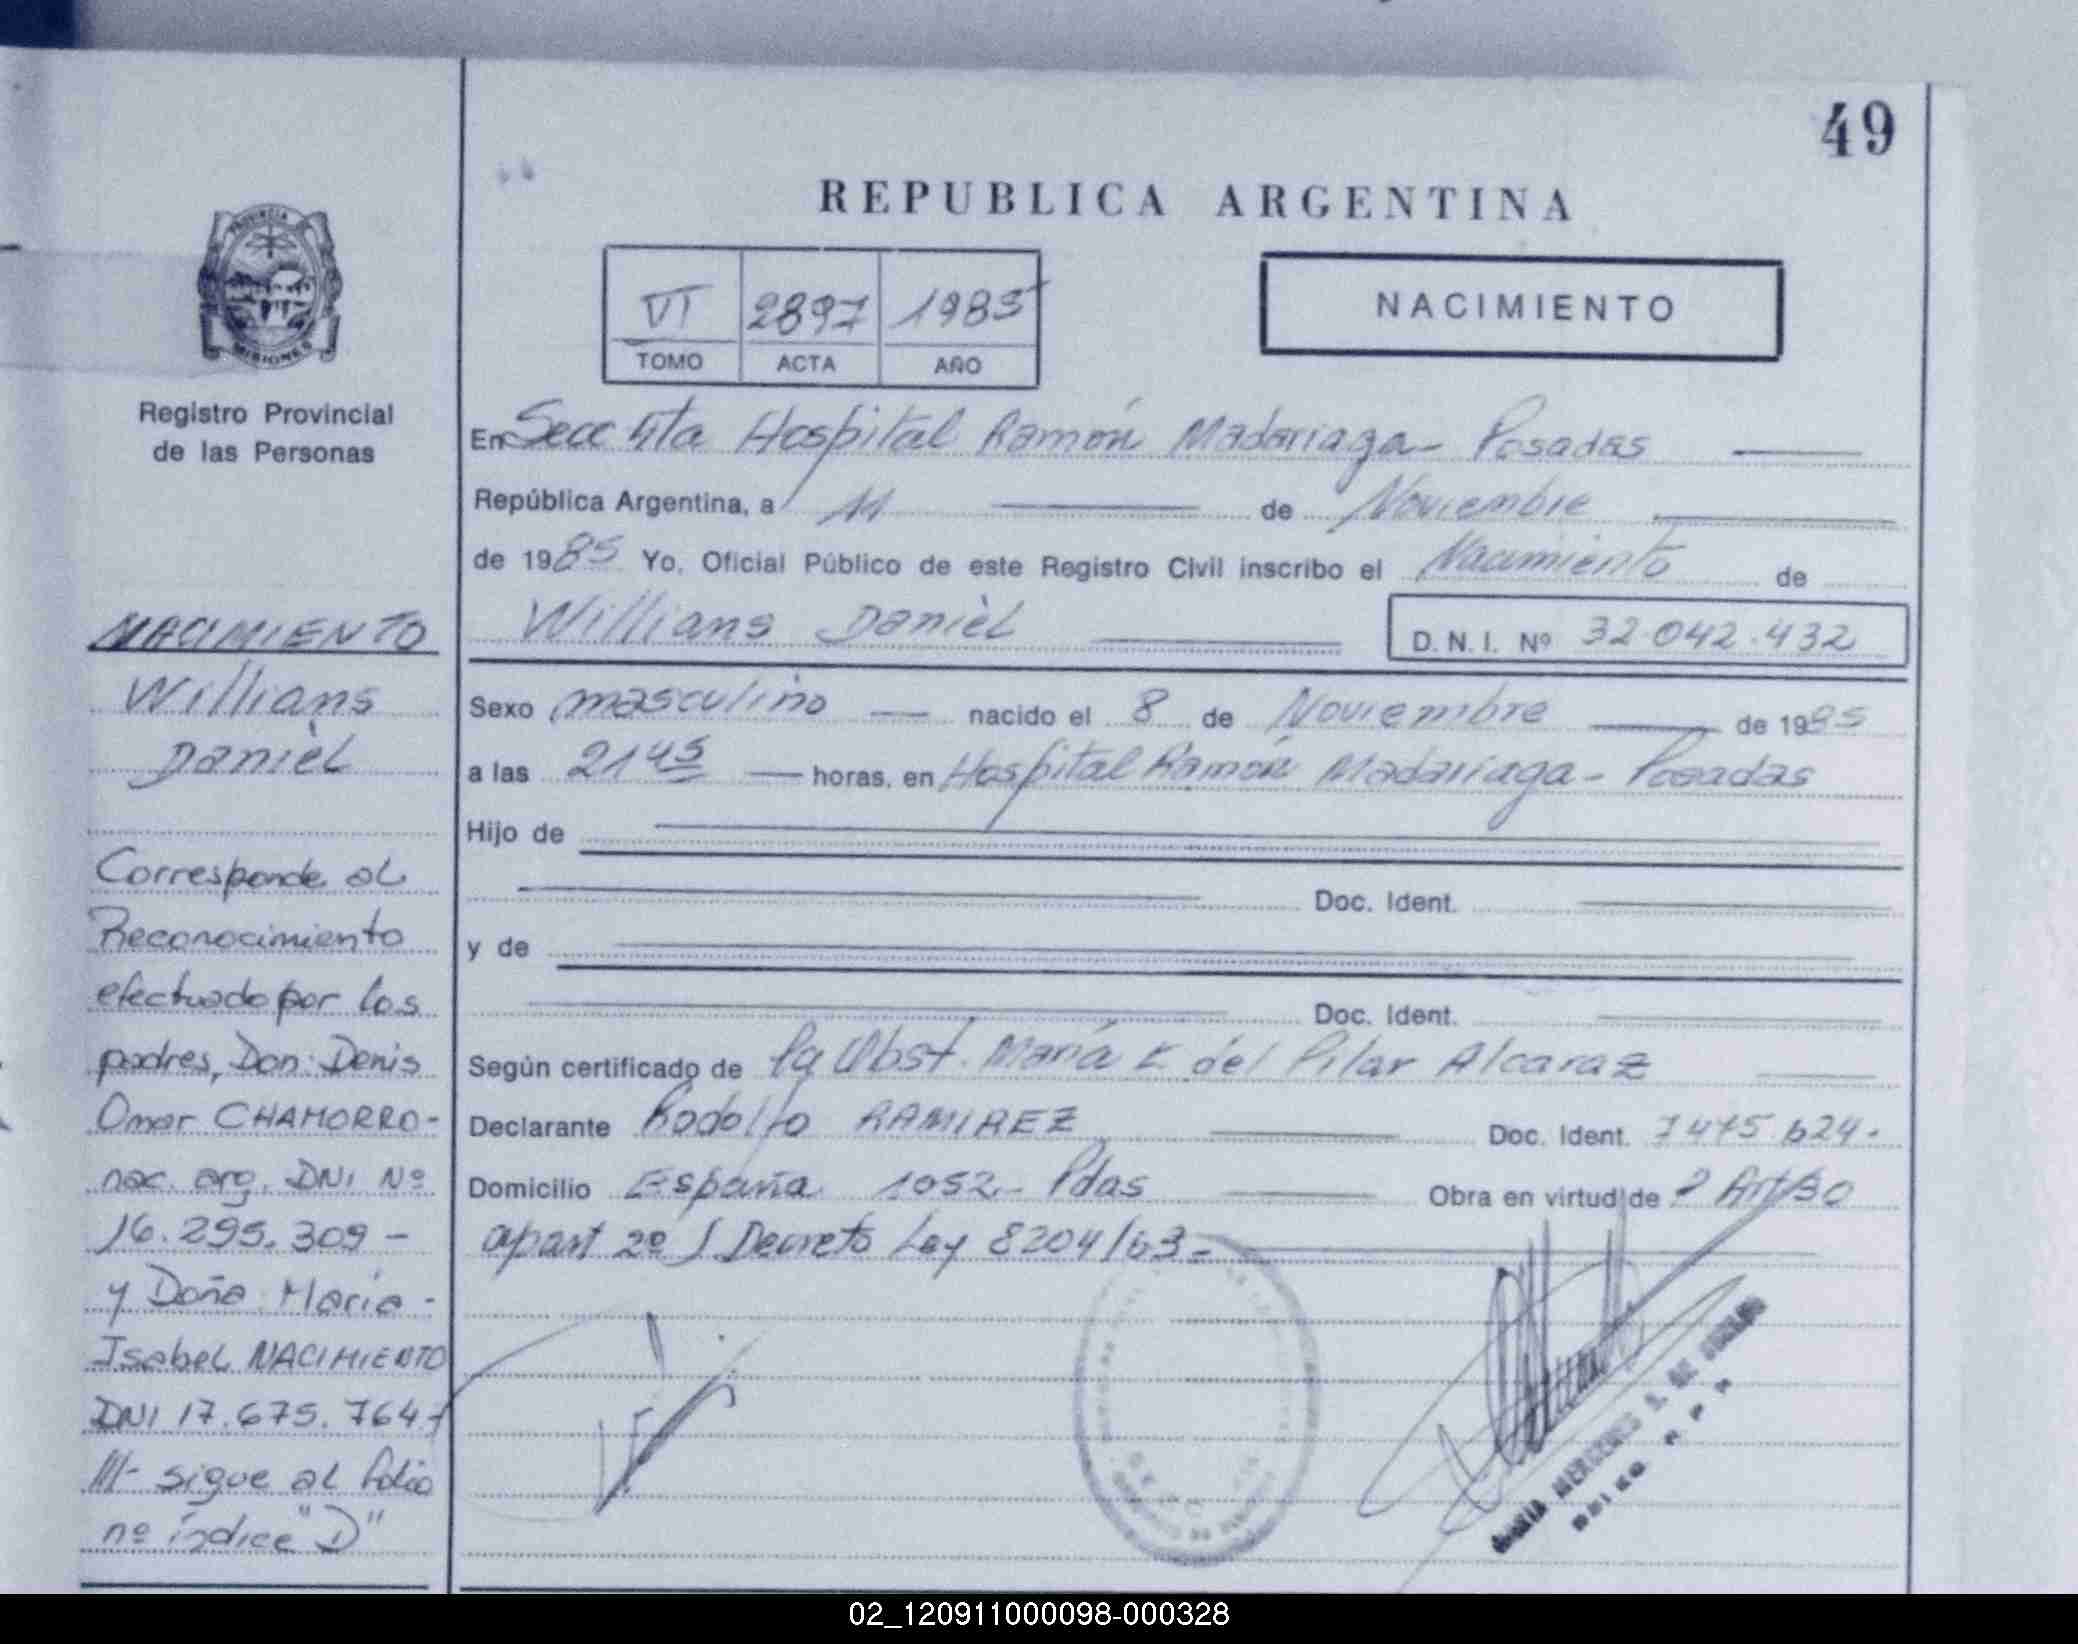 49
REPUBLICA ARGENTINA
PROVINCIA
MISIONES
VI 2897 1985
TOMO ACTA AÑO
NACIMIENTO
Registro Provincial
de las Personas
En Secc 5ta Hospital Ramón Madariaga - Posadas
República Argentina, a 11 de Noviembre
de 1985 Yo, Oficial Público de este Registro Civil inscribo el Nacimiento de
Willians Danièl D. N. I. Nº 32.042.432
Sexo masculino nacido el 8 de Noviembre de 1985
a las 21 45 horas, en Hospital Ramón Madariaga - Posadas
Hijo de
Doc. Ident.
y de
Doc. Ident.
Según certificado de la Obst. María E del Pilar Alcaraz
Declarante Rodolfo RAMIREZ Doc. Ident. 7475.624.
Domicilio España 1052 - Pdas Obra en virtud de Art 30
apart 2º Decreto Ley 8204/63 -
NACIMIENTO
Willians
Danièl
Corresponde al
Reconocimiento
efectuado por los
padres, Don: Denis
Omar CHAMORRO -
nac. arg. DNI Nº
16.295.309 -
y Doña María -
Isabel NACIMIENTO
DNI 17.675.764 -
///- sigue al folio
nº índice "D"
02_120911000098-000328